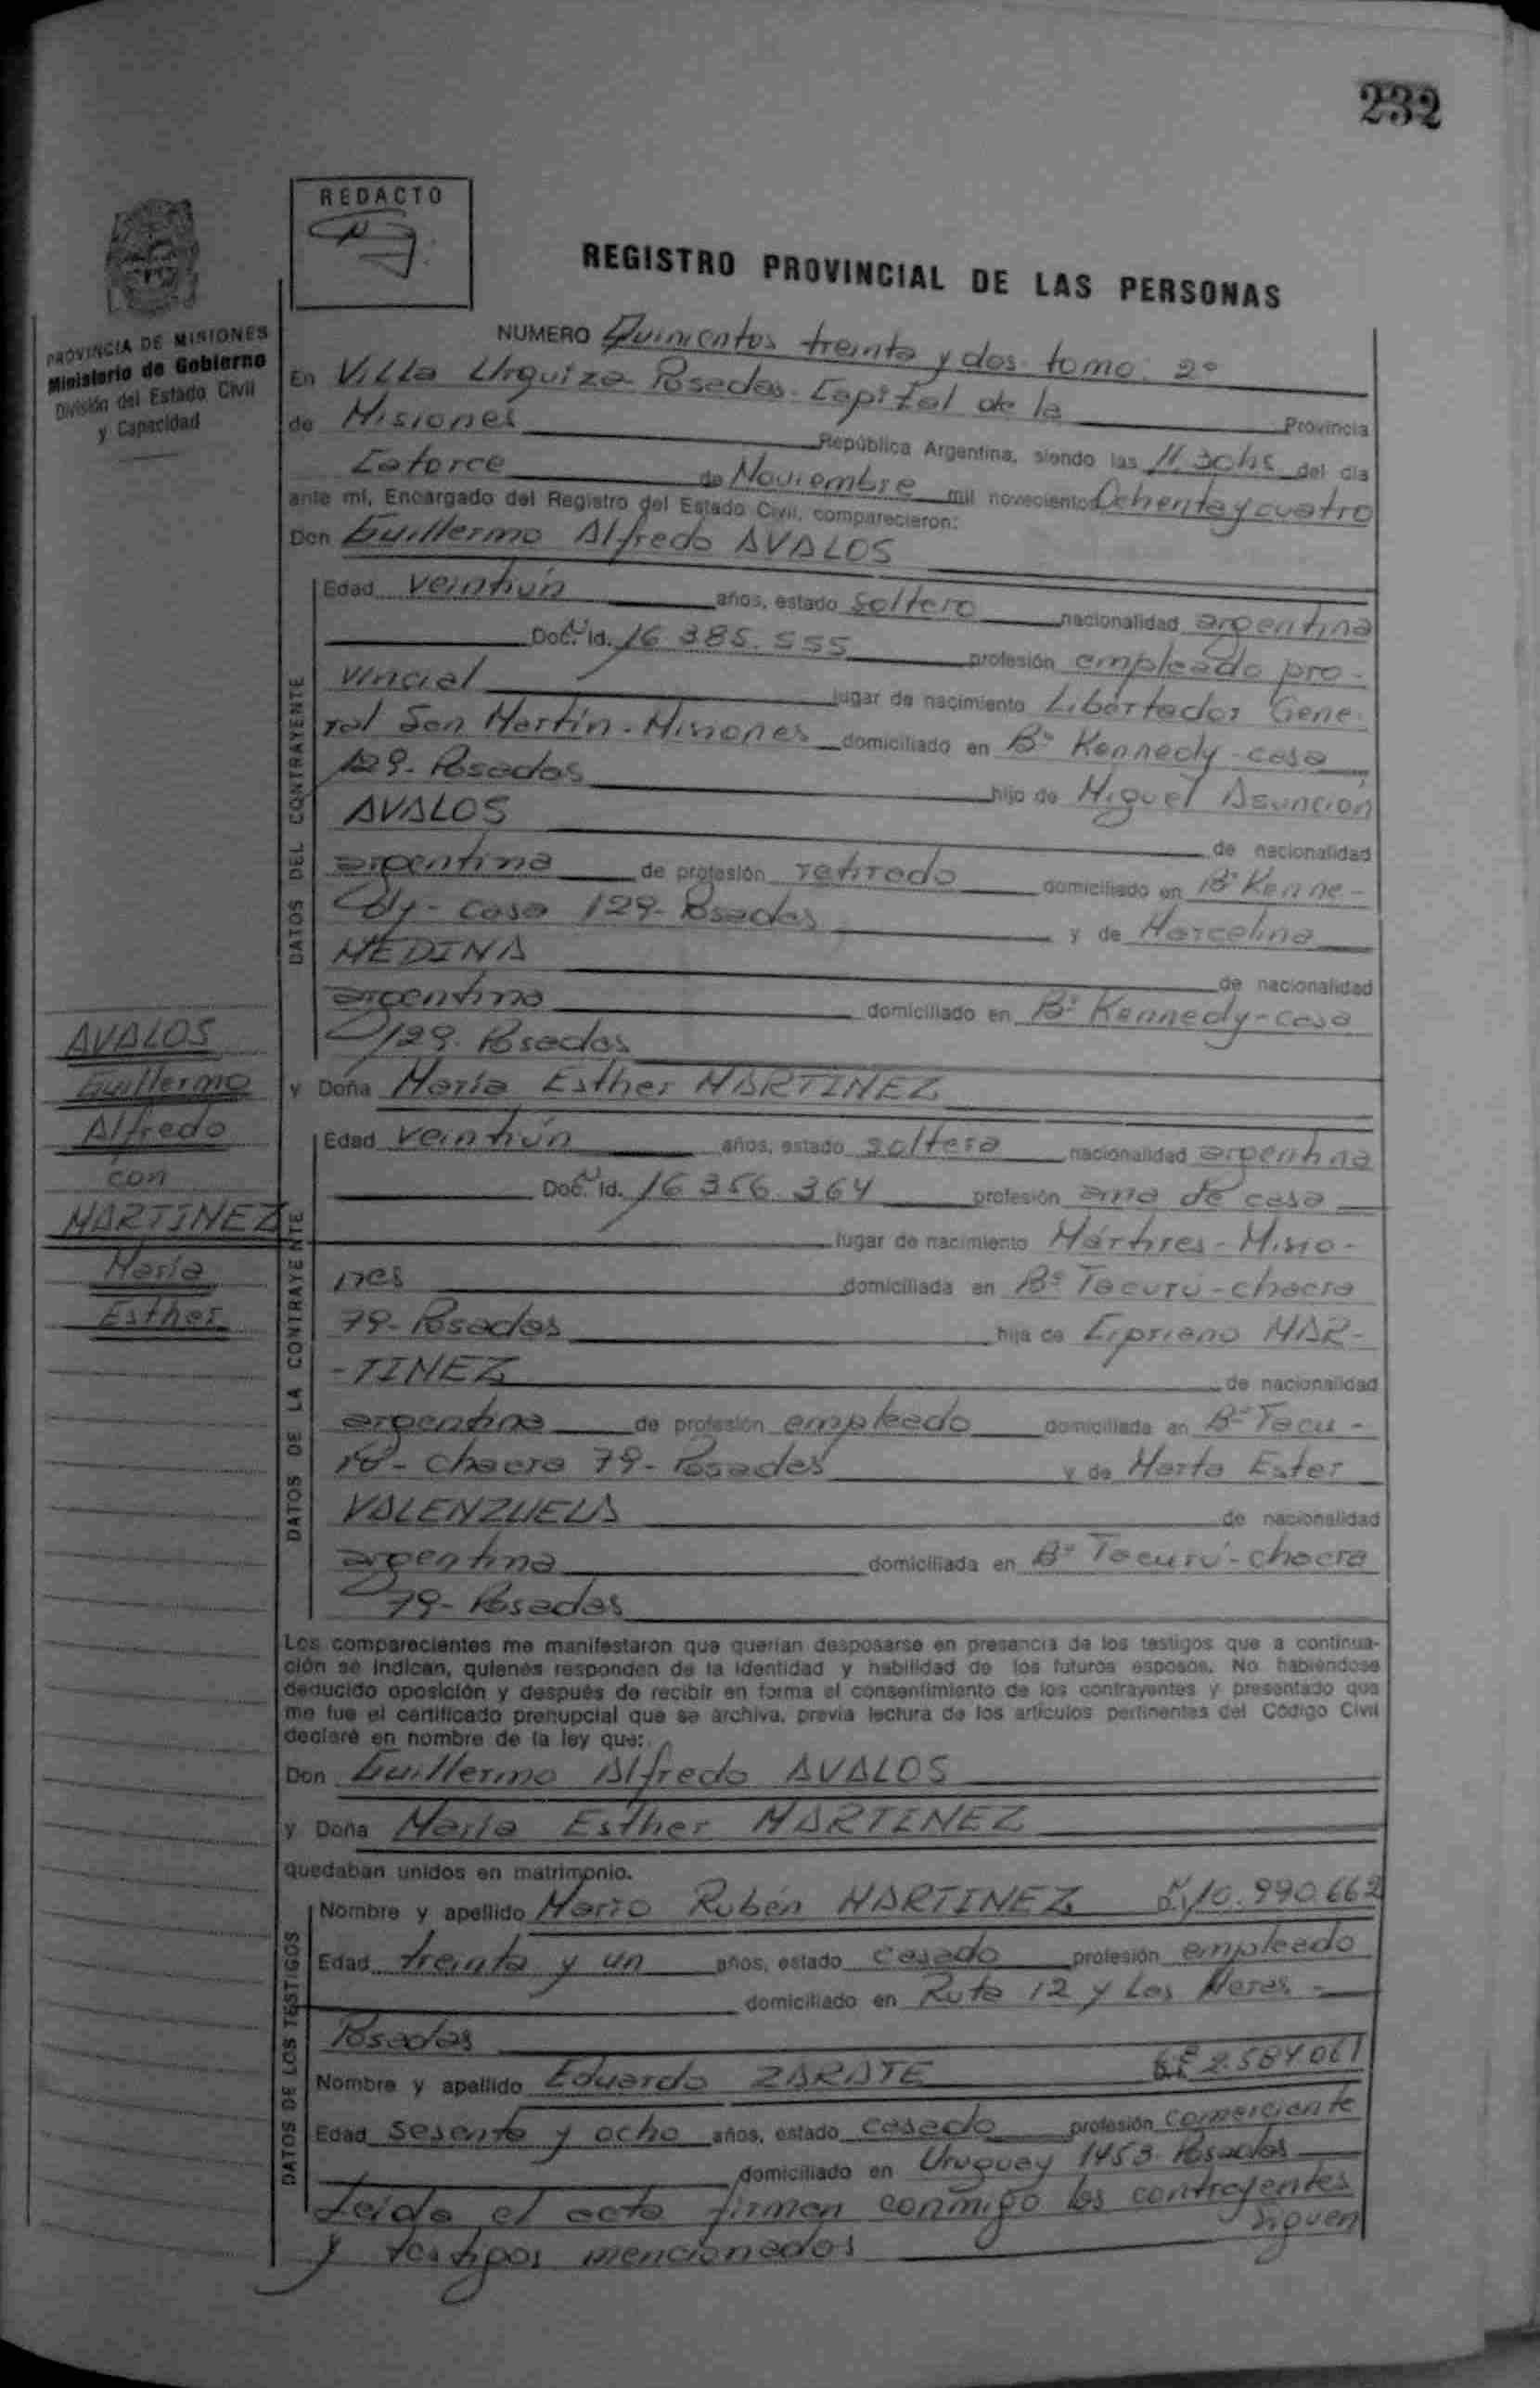 232
REDACTO
REGISTRO PROVINCIAL DE LAS PERSONAS
PROVINCIA DE MISIONES
Ministerio de Gobierno
División del Estado Civil
y Capacidad
NUMERO Quinientos treinta y dos - tomo: 2º
En Villa Urquiza - Posadas - Capital de la Provincia
de Misiones República Argentina, siendo las 11.30hs del día
Catorce de Noviembre mil novecientos Ochenta y cuatro
ante mí, Encargado del Registro del Estado Civil, comparecieron:
Don Guillermo Alfredo AVALOS
DATOS DEL CONTRAYENTE
Edad veintiún años, estado soltero nacionalidad argentina
Doc. Id. 16.385.555 profesión empleado pro-
vincial lugar de nacimiento Libertador Gene-
ral San Martín - Misiones domiciliado en Bº Kennedy - casa
129 - Posadas hijo de Miguel Asunción
AVALOS de nacionalidad
argentina de profesión retirado domiciliado en Bº Kenne-
dy - casa 129 - Posadas y de Marcelina
MEDINA de nacionalidad
argentina domiciliado en Bº Kennedy - casa
129 - Posadas
AVALOS
Guillermo
Alfredo
con
MARTINEZ
María
Esther
y Doña María Esther MARTINEZ
DATOS DE LA CONTRAYENTE
Edad veintiún años, estado soltera nacionalidad argentina
Doc. Id. 16.356.364 profesión ama de casa
lugar de nacimiento Mártires - Misio-
nes domiciliada en Bº Tacurú - chacra
79 - Posadas hija de Cipriano MAR-
-TINEZ de nacionalidad
argentina de profesión empleado domiciliada en Bº Tacu-
rú - chacra 79 - Posadas y de Marta Ester
VALENZUELA de nacionalidad
argentina domiciliada en Bº Tacurú - chacra
79 - Posadas
Los comparecientes me manifestaron que querían desposarse en presencia de los testigos que a continua-
ción se indican, quienes responden de la identidad y habilidad de los futuros esposos. No habiéndose
deducido oposición y después de recibir en forma el consentimiento de los contrayentes y presentado que
me fue el certificado prenupcial que se archiva, previa lectura de los artículos pertinentes del Código Civil
declaré en nombre de la ley que:
Don Guillermo Alfredo AVALOS
y Doña María Esther MARTINEZ
quedaban unidos en matrimonio.
DATOS DE LOS TESTIGOS
Nombre y apellido Mario Rubén MARTINEZ 10.990.662
Edad treinta y un años, estado casado profesión empleado
domiciliado en Ruta 12 y Las Heras -
Posadas
Nombre y apellido Eduardo ZARATE 2.584.061
Edad sesenta y ocho años, estado casado profesión comerciante
domiciliado en Uruguay 1453 - Posadas
Leída el acta firman conmigo los contrayentes
y testigos mencionados siguen